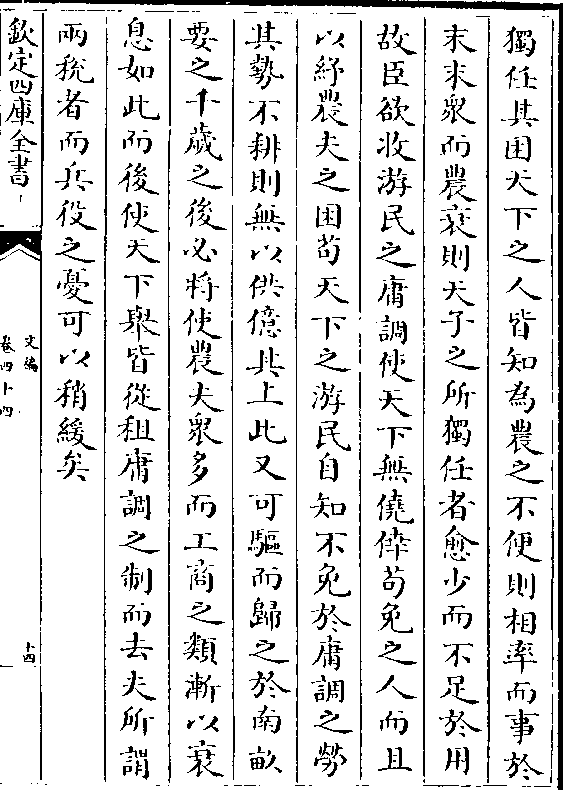 獨任其困天下之人皆知為農之不便則相率而事於
末末衆而農衰則天子之所獨任者愈少而不足於用
故臣欲收游民之庸調使天下無僥倖茍免之人而且
以紓農夫之困茍天下之游民自知不免於庸調之勞
其勢不耕則無以供億其上此又可驅而歸之於南畝
要之千歲之後必將使農夫衆多而工商之類漸以衰
息如此而後使天下舉皆從租庸調之制而去夫所謂
兩稅者而兵役之憂可以稍緩矣
欽定四庫全書
文編
卷四十四
十四